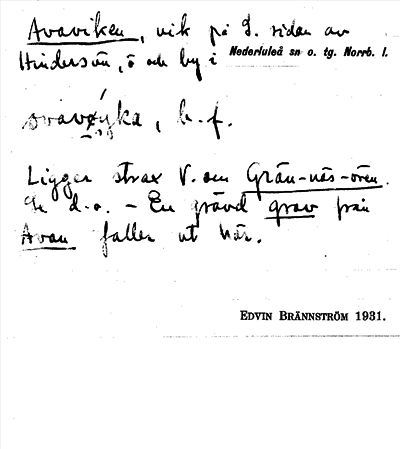 Avaviken, vik på S. sidan av
Hindersön, ö och by i Nederluleå sn o. tg. Norrb. l.
b. f.
Ligger strax V. om Grän-näs-ören.
Se d. o. – En grävd grav från
Avan faller ut här.
EDVIN BRÄNNSTRÖM 1931.